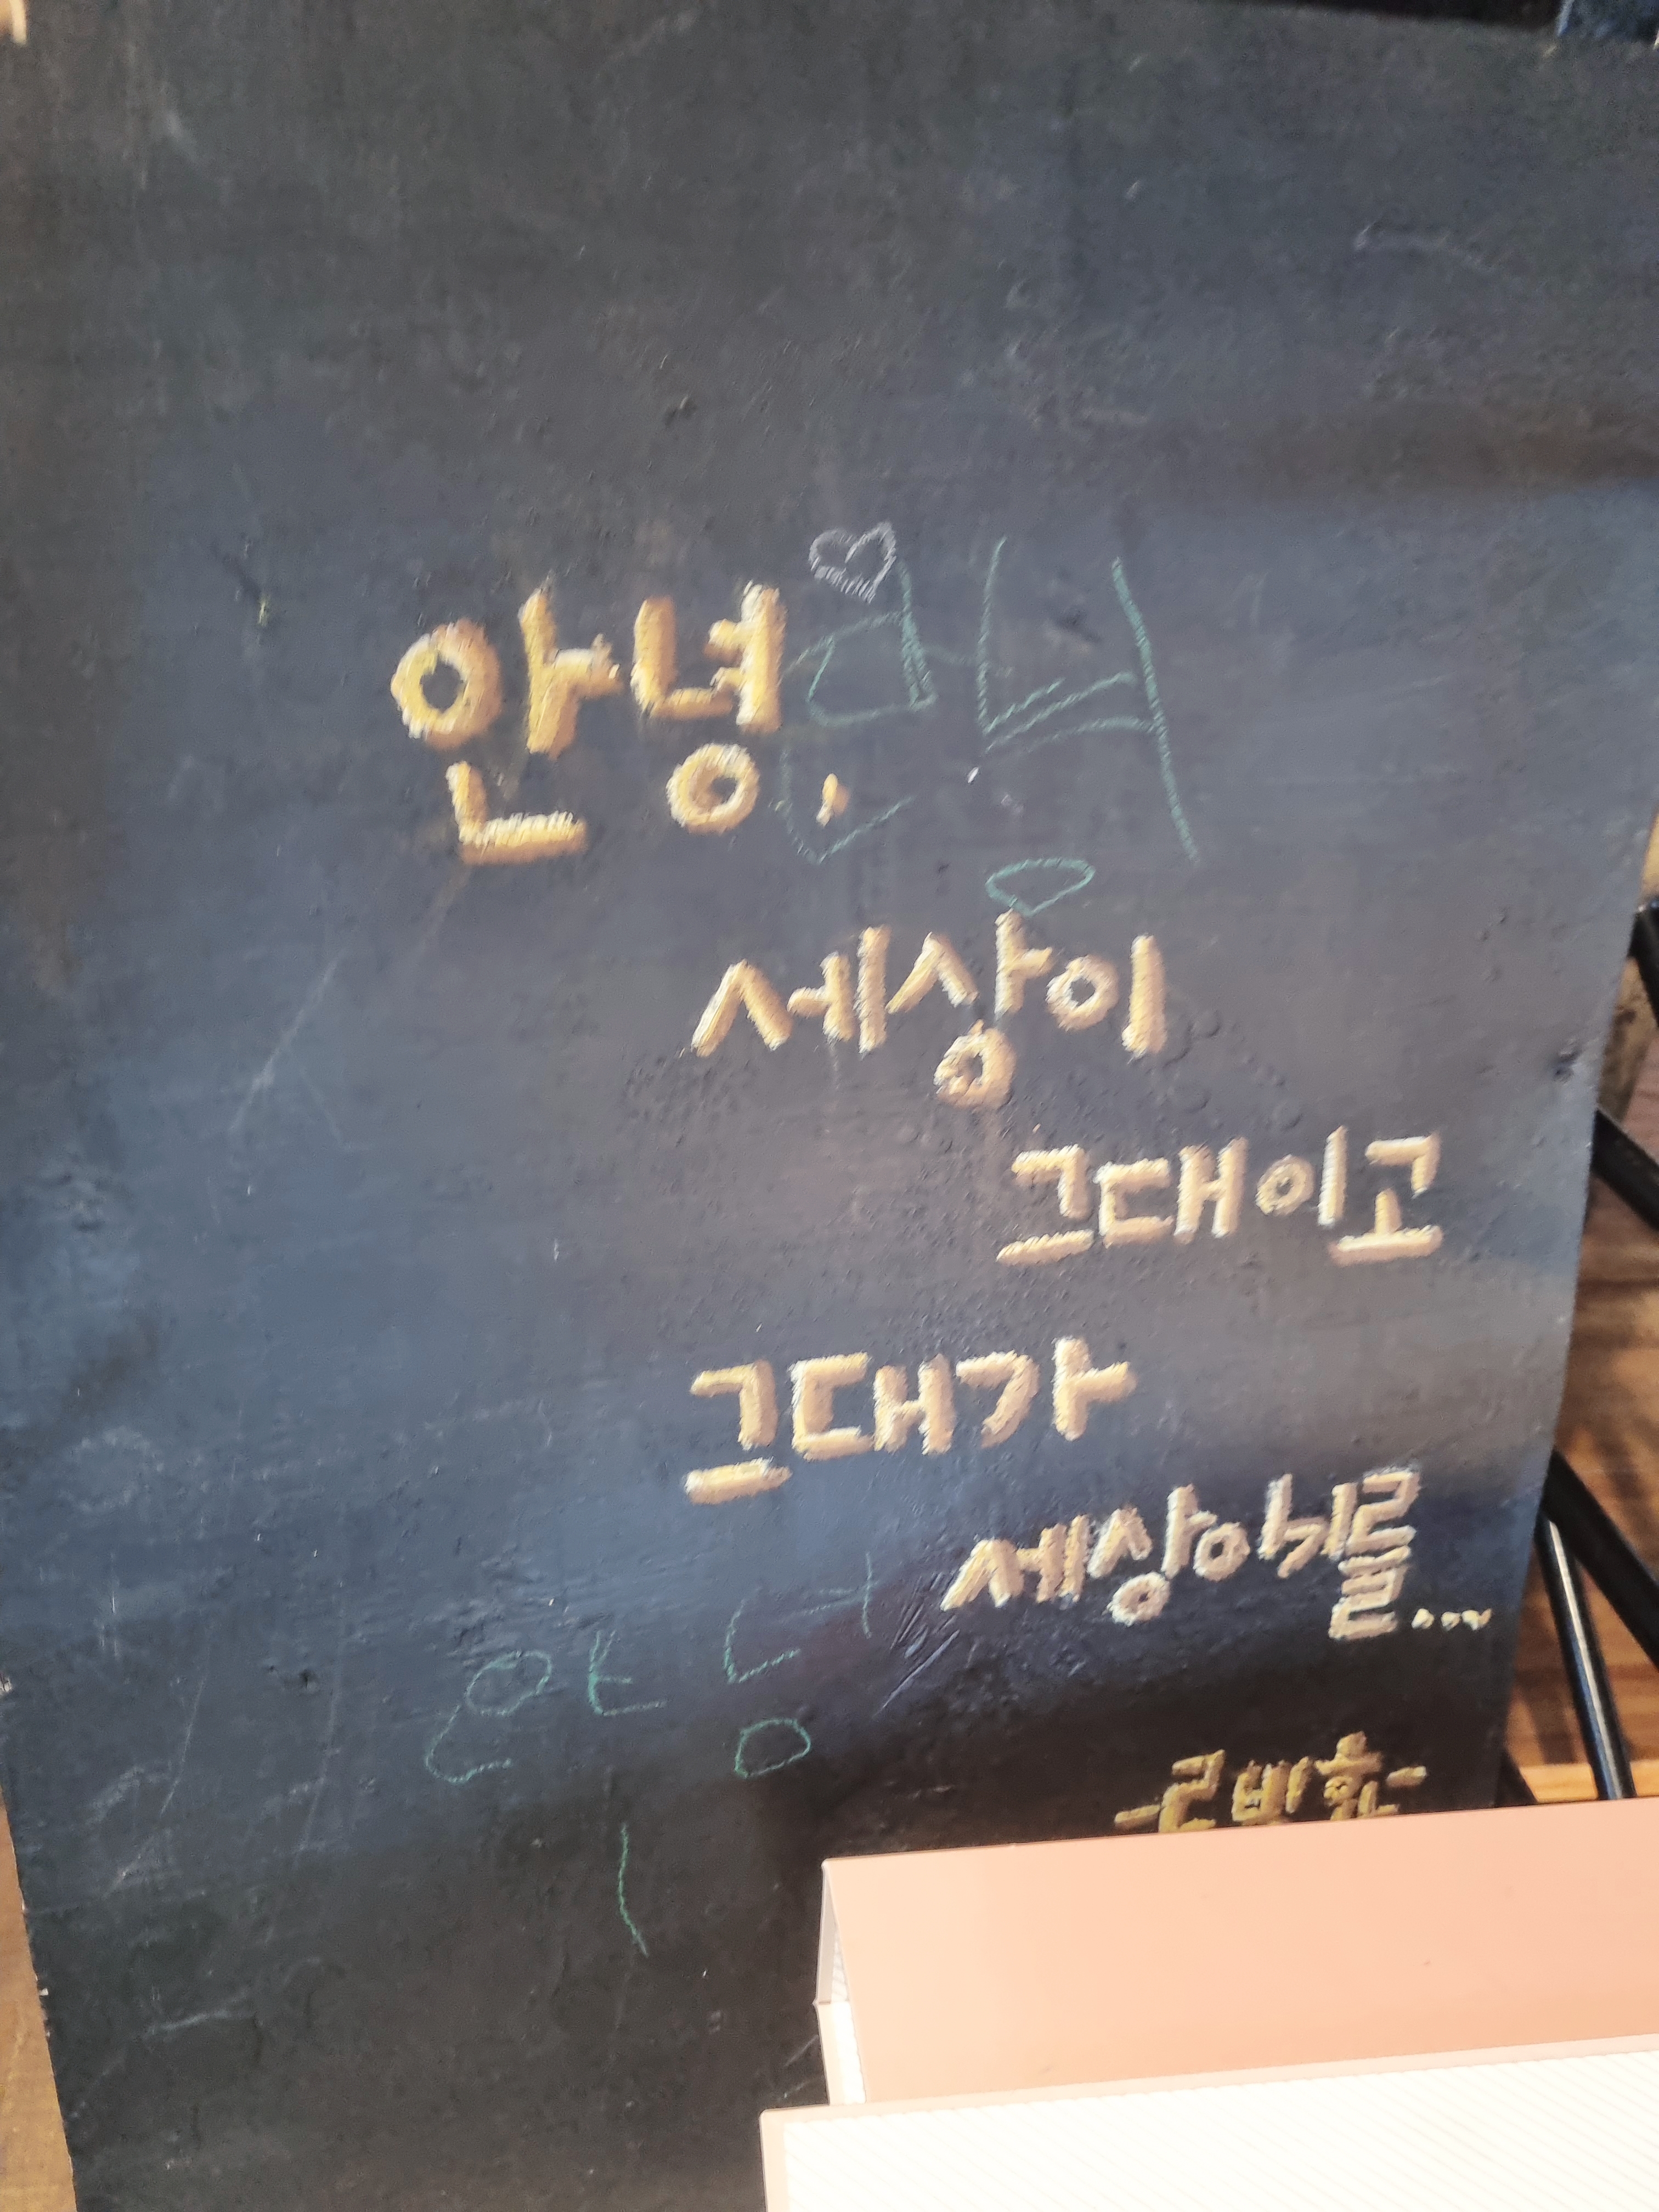 안녕.
세상이
그대이고
그대가
세상이거를...
안녕